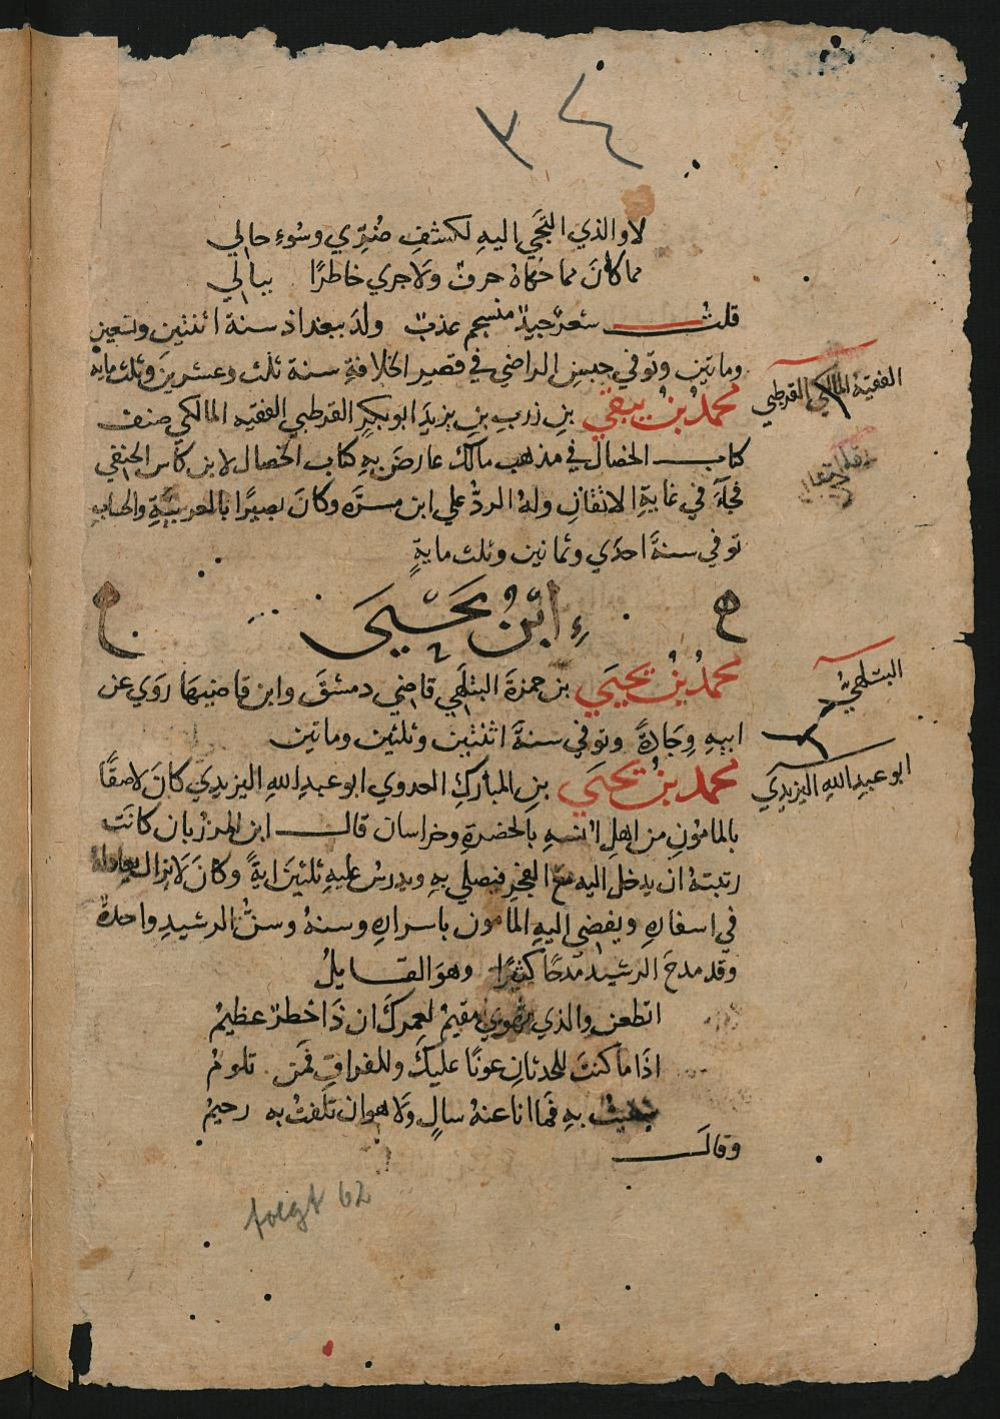 ٣٤
لا والذي التجي اليهِ لكشفِ ضُرِّي وسُوءِ حالي
ما كانَ مما حكاهُ حرفٌ ولَا جري خاطرًا ببالي
قلت شعرٌ جيدٌ منسجم عذبٌ ولدَ ببغداذ سنة اثنتين وتسعين
وماتين وتوفي في حبسِ الراضي في قصير الخلافةِ سنة ثلث وعشرينَ وثلث ماية
الفقيه المالكي القرطبي
محمدُ بنُ يبقي بنِ زربِ بنِ يزيدَ ابو بكرٍ القرطبي الفقيه المالكي صنف
كتاب الخصال في مذهب مالك عارضَ بهِ كتاب الخصال لابن كاس الحنفي
فجآءَ في غايةِ الاتقانِ ولهُ الردُّ علي ابن مسرَّه وكانَ بصيرًا بالعربيَّةِ والحساب
توفي سنةَ احدَي وثمانين وثلث مايةٍ
ابْنُ يَحْيَى
البتلهيُّ
محمدُ بنُ يحيَي بن حمزةَ البتلهي قاضي دمشقَ وابن قاضيهَا روَي عن
ابيهِ وِجَادةً وتوفي سنةَ اثنتين وثلثين وماتين
ابو عبدِ اللهِ اليزيدَي
محمد بنُ يحيَي بنِ المباركِ العدوي ابو عبدِ اللهِ اليزيدي كانَ لاصقًا
بالمامُونِ من اهلِ انسهِ بالحضرةِ وخراسان قالـــ ابن المرزُبان كانَت
رتبتهُ ان يدخل اليه مع الفجرِ فيصلي بهِ ويدرسُ عليهِ ثلثينَ ايةً وكانَ لَا يزال يعادله
في اسفارهِ ويفضي اليهِ المامون باسرارهِ وسنهُ وسنُّ الرشيدِ واحدةٌ
وقد مدحَ الرشيدَ مَدحًا كثيرًا وهوَ القـايلُ
اتظعن والذي تهوي مقيمُ لعمركَ ان ذَا خطرٌ عظيمُ
اذَا ما كنتَ للحدثانِ عونًا عليكَ وللفراقِ فمَن تلومُ
به فمَا انا عنهُ سالٍ وَلَا هو ان تلفتُ به رحيمُ
وقالَــ
folgt 62